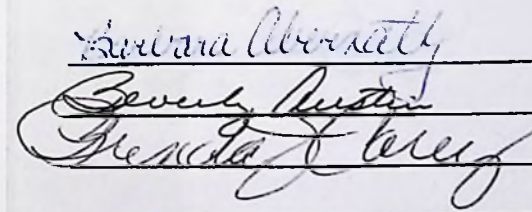 Barbara Abernathy
Beverly Austin
Brenda J. Carey